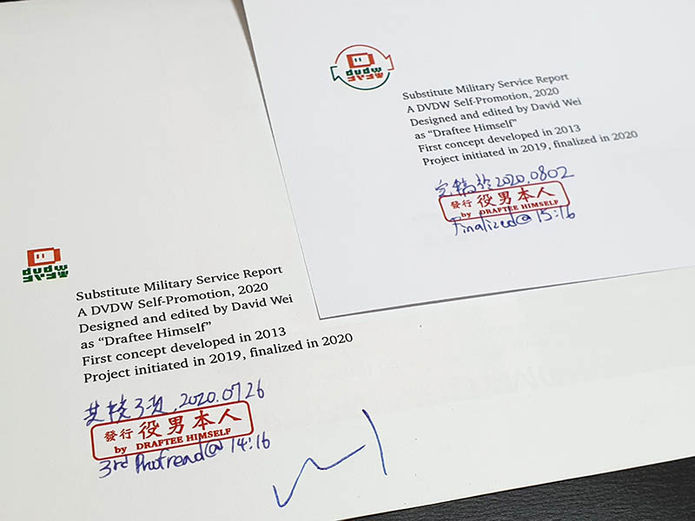 Substitute Military Service Report
A DVDW Self-Promotion, 2020
Designed and edited by David Wei
as “Draftee Himself”
First concept developed in 2013
Project initiated in 2019, finalized in 2020
完稿於2020.0802
發行 役男本人
by DRAFTEE HIMSELF
Finalized@15:16
Substitute Military Service Report
A DVDW Self-Promotion, 2020
Designed and edited by David Wei
as “Draftee Himself”
First concept developed in 2013
Project initiated in 2019, finalized in 2020
2020.0726
發行 役男本人
by DRAFTEE HIMSELF
3rd Proofread@14:16